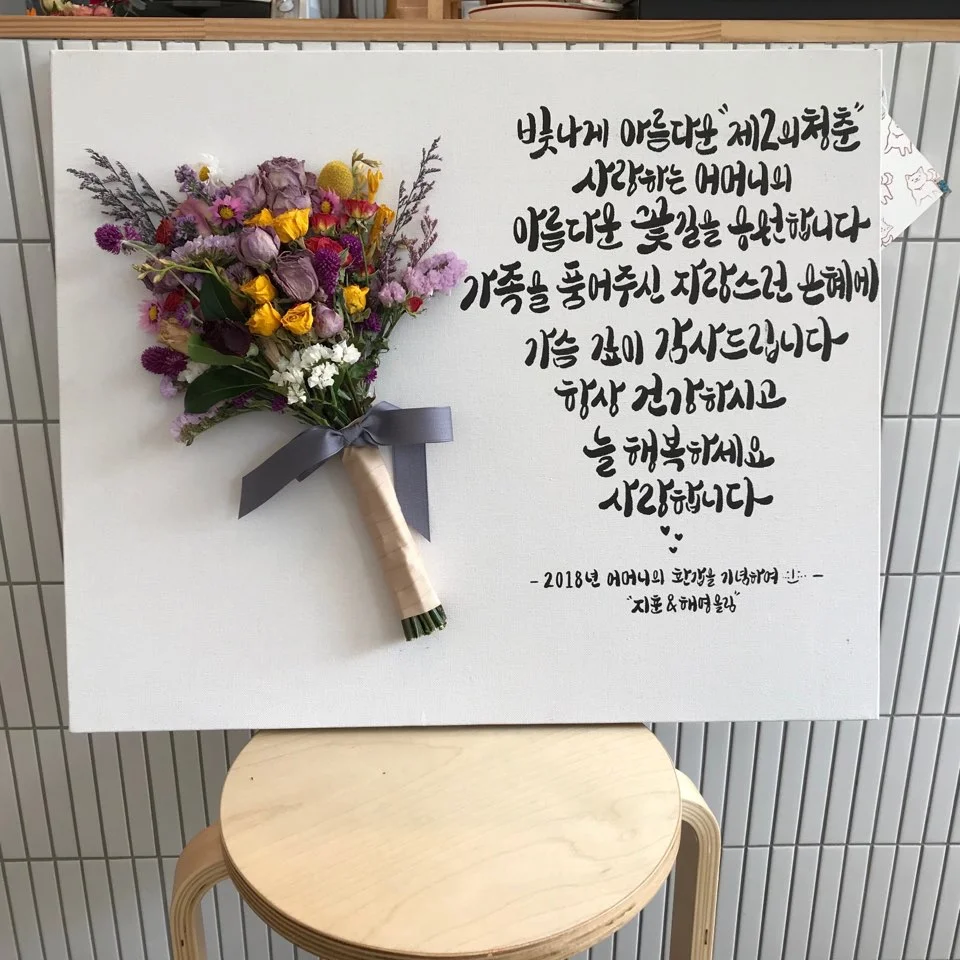 빛나게 아름다운 "제2의청춘"
사랑하는 어머니의
아름다운 꽃길을 응원합니다
가족을 품어주신 자랑스런 은혜에
가슴 깊이 감사드립니다
항상 건강하시고
늘 행복하세요
사랑합니다
- 2018년 어머니의 환갑을 기념하여 -
"지훈 & 해영 올림"